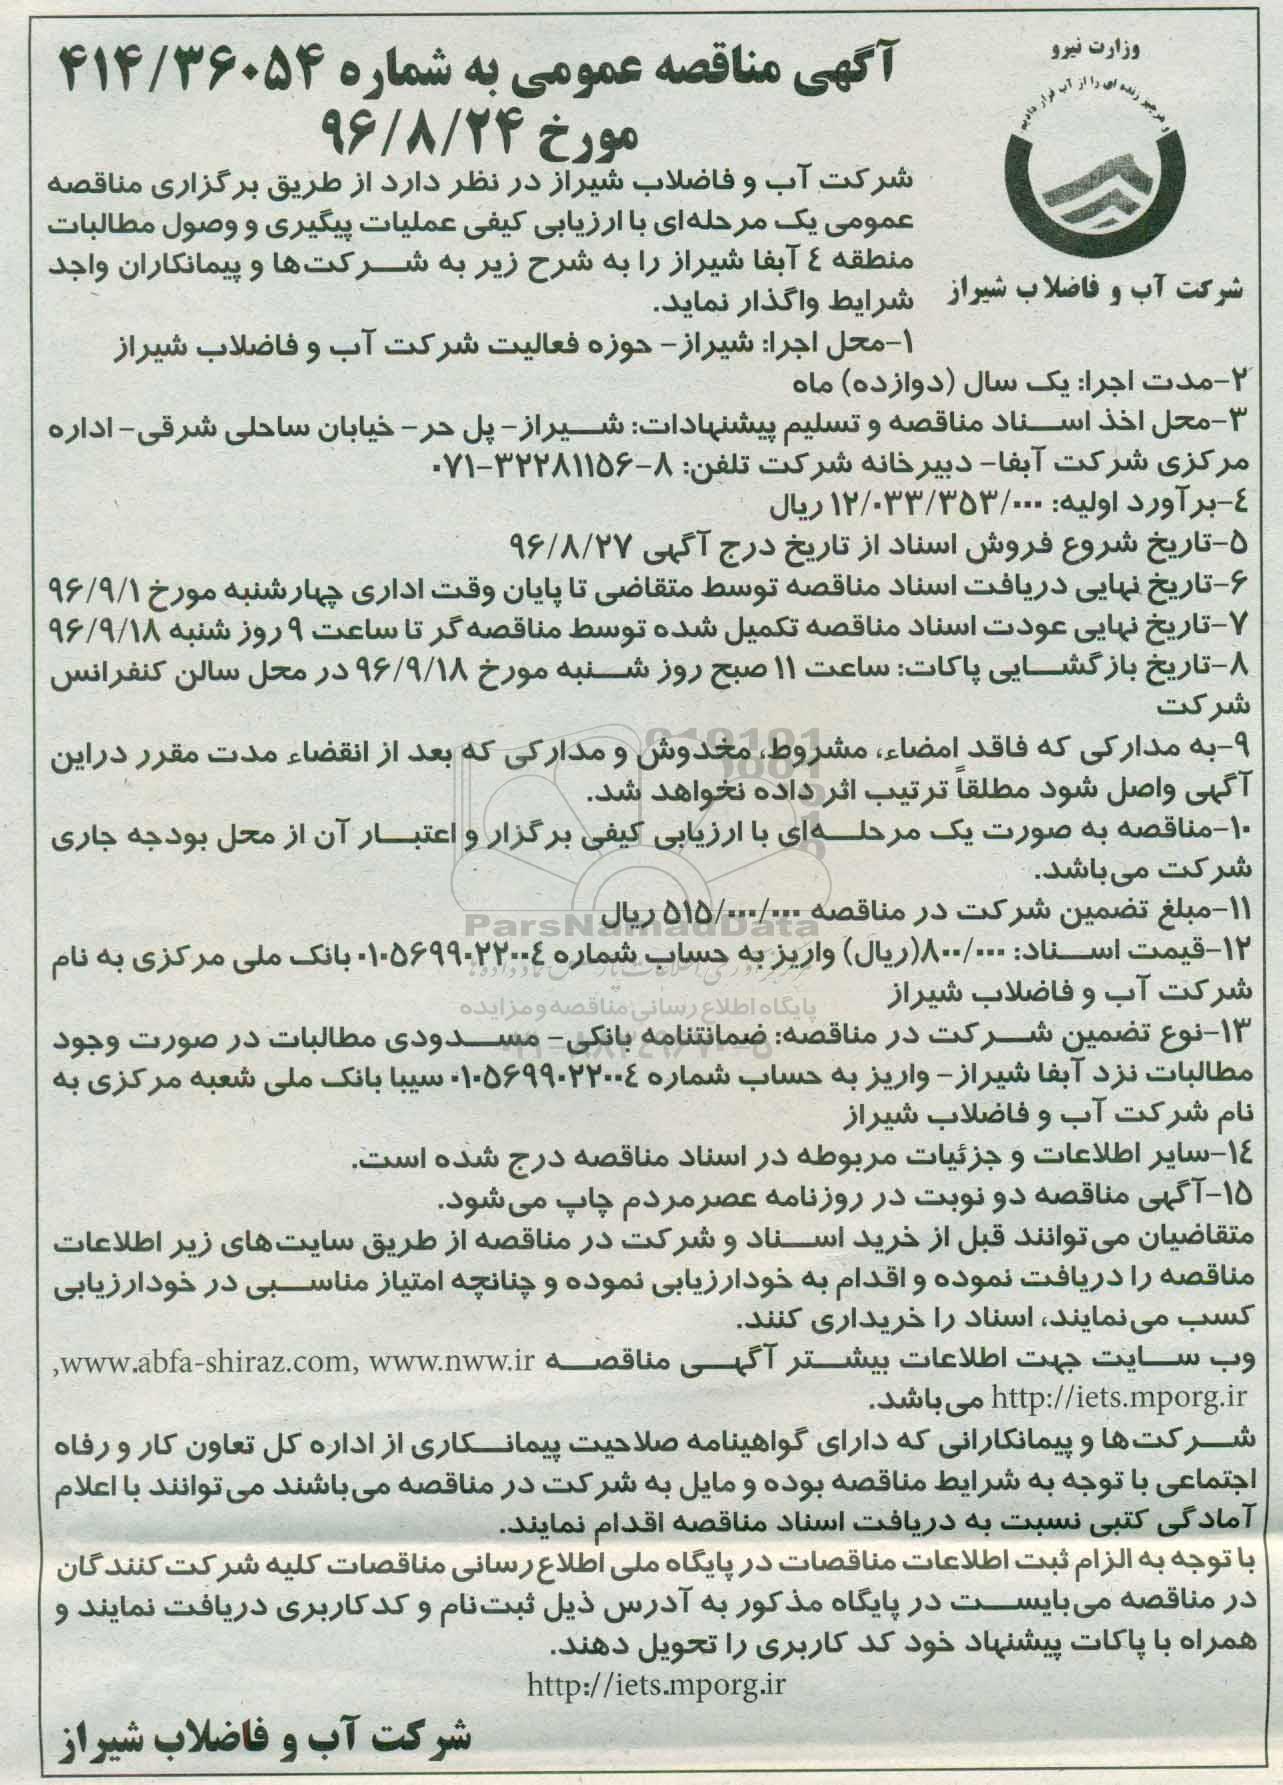 وزارت نیرو
شرکت آب و فاضلاب شیراز
آگهی مناقصه عمومی به شماره ۴۱۴/۳۶۰۵۴
مورخ ۹۶/۸/۲۴
شرکت آب و فاضلاب شیراز در نظر دارد از طریق برگزاری مناقصه
عمومی یک مرحله‌ای با ارزیابی کیفی عملیات پیگیری و وصول مطالبات
منطقه ٤ آبفا شیراز را به شرح زیر به شرکت‌ها و پیمانکاران واجد
شرایط واگذار نماید.
۱-محل اجرا: شیراز- حوزه فعالیت شرکت آب و فاضلاب شیراز
۲-مدت اجرا: یک سال (دوازده) ماه
۳-محل اخذ اسناد مناقصه و تسلیم پیشنهادات: شیراز- پل حر- خیابان ساحلی شرقی- اداره
مرکزی شرکت آبفا- دبیرخانه شرکت تلفن: ۸-۳۲۲۸۱۱۵۶-۰۷۱
٤-برآورد اولیه: ۱۲/۰۳۳/۳۵۳/۰۰۰ ریال
۵-تاریخ شروع فروش اسناد از تاریخ درج آگهی ۹۶/۸/۲۷
۶-تاریخ نهایی دریافت اسناد مناقصه توسط متقاضی تا پایان وقت اداری چهارشنبه مورخ ۹۶/۹/۱
۷-تاریخ نهایی عودت اسناد مناقصه تکمیل شده توسط مناقصه‌گر تا ساعت ۹ روز شنبه ۹۶/۹/۱۸
۸-تاریخ بازگشایی پاکات: ساعت ۱۱ صبح روز شنبه مورخ ۹۶/۹/۱۸ در محل سالن کنفرانس
شرکت
۹-به مدارکی که فاقد امضاء، مشروط، مخدوش و مدارکی که بعد از انقضاء مدت مقرر دراین
آگهی واصل شود مطلقاً ترتیب اثر داده نخواهد شد.
۱۰-مناقصه به صورت یک مرحله‌ای با ارزیابی کیفی برگزار و اعتبار آن از محل بودجه جاری
شرکت می‌باشد.
۱۱-مبلغ تضمین شرکت در مناقصه ۵۱۵/۰۰۰/۰۰۰ ریال
ParsNamadData
۱۲-قیمت اسناد: ۸۰۰/۰۰۰(ریال) واریز به حساب شماره ۰۱۰۵۶۹۹۰۲۲۰۰٤ بانک ملی مرکزی به نام
شرکت آب و فاضلاب شیراز
پایگاه اطلاع رسانی مناقصه و مزایده
۱۳-نوع تضمین شرکت در مناقصه: ضمانتنامه بانکی- مسدودی مطالبات در صورت وجود
مطالبات نزد آبفا شیراز- واریز به حساب شماره ۰۱۰۵۶۹۹۰۲۲۰۰٤ سیبا بانک ملی شعبه مرکزی به
نام شرکت آب و فاضلاب شیراز
۱٤-سایر اطلاعات و جزئیات مربوطه در اسناد مناقصه درج شده است.
۱۵-آگهی مناقصه دو نوبت در روزنامه عصرمردم چاپ می‌شود.
متقاضیان می‌توانند قبل از خرید اسناد و شرکت در مناقصه از طریق سایت‌های زیر اطلاعات
مناقصه را دریافت نموده و اقدام به خودارزیابی نموده و چنانچه امتیاز مناسبی در خودارزیابی
کسب می‌نمایند، اسناد را خریداری کنند.
وب سایت جهت اطلاعات بیشتر آگهی مناقصه www.abfa-shiraz.com, www.nww.ir,
http://iets.mporg.ir می‌باشد.
شرکت‌ها و پیمانکارانی که دارای گواهینامه صلاحیت پیمانکاری از اداره کل تعاون کار و رفاه
اجتماعی با توجه به شرایط مناقصه بوده و مایل به شرکت در مناقصه می‌باشند می‌توانند با اعلام
آمادگی کتبی نسبت به دریافت اسناد مناقصه اقدام نمایند.
با توجه به الزام ثبت اطلاعات مناقصات در پایگاه ملی اطلاع رسانی مناقصات کلیه شرکت کنندگان
در مناقصه می‌بایست در پایگاه مذکور به آدرس ذیل ثبت‌نام و کد کاربری دریافت نمایند و
همراه با پاکات پیشنهاد خود کد کاربری را تحویل دهند.
http://iets.mporg.ir
شرکت آب و فاضلاب شیراز